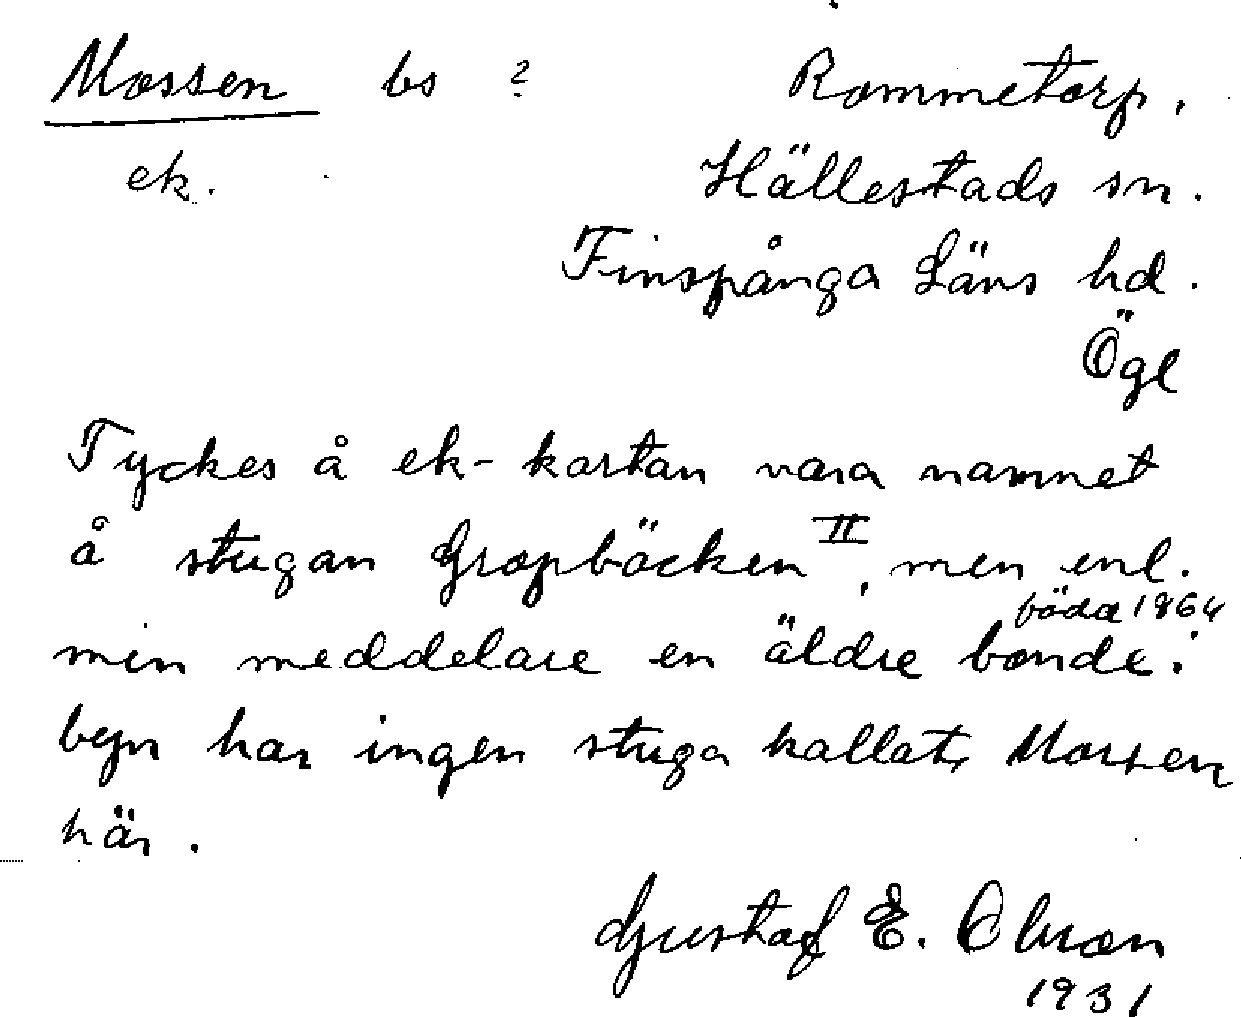 Mossen bs ? Rommetorp.
ek. Hällestads sn.
Finspånga Läns hd.
Ögl
Tyckes å ek-kartan vara namnet
å stugan Gropbäcken II, men enl.
född 1864
min meddelare en äldre bonde i
byn har ingen stuga kallats Mossen
här.
Gustaf E. Olsson
1931